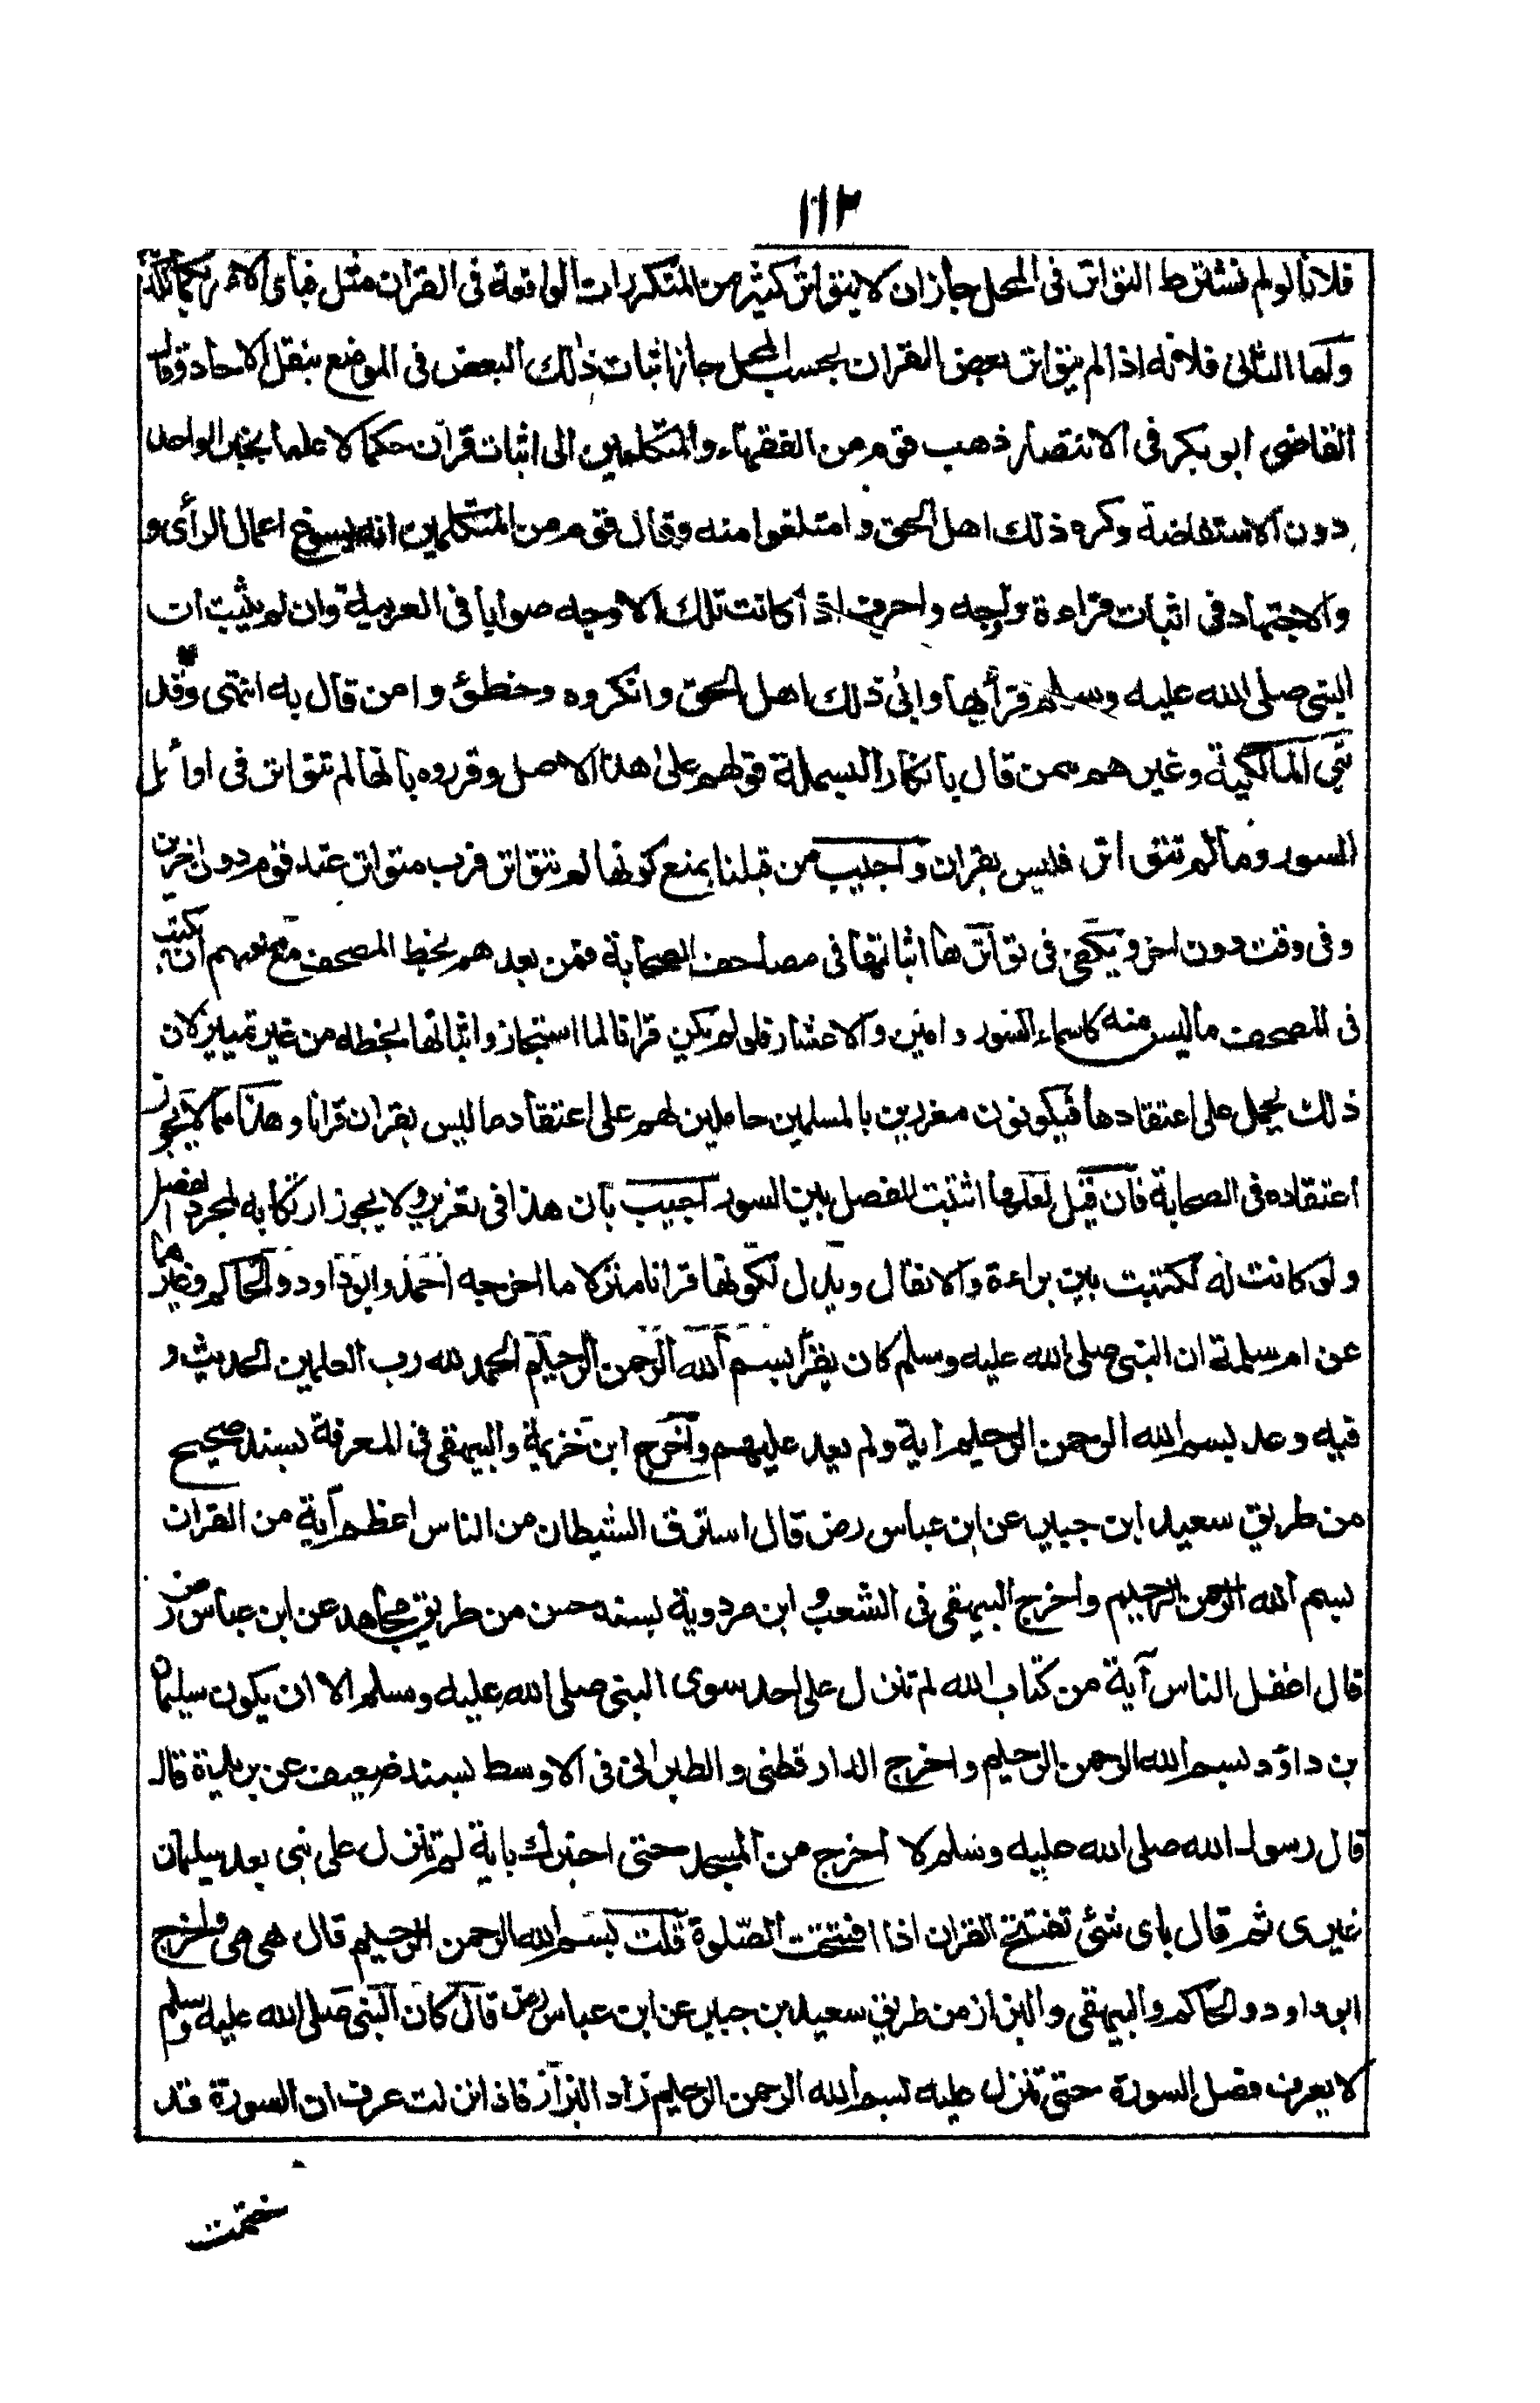 ١١٢
فلانا لو لم نشترط التواتر فى المحل جاز ان لا يتواتر كثير من المتكررات الواقعة فى القرآن مثل فبأى آلاء ربكما تكذبان
واما الثانى فلانه اذا لم يتواتر بعض القران بحسب المحل جاز اثبات ذلك البعض فى الموضع بنقل الاحاد وقال
القاضى ابو بكر فى الانتصار ذهب قوم من الفقهاء والمتكلمين الى اثبات قرآن حكما لا علما بخبر الواحد
دون الاستفاضة وكره ذلك اهل الحق وامتلغوا منه وقال قوم من المتكلمين انه يسوغ اعمال الرأى و
والاجتهاد فى اثبات قراءة واوجه واحرف اذا كانت تلك الاوجه صوابا فى العربية وان لم يثبت ان
النبى صلى الله عليه وسلم قرأ بها وابى ذلك اهل الحق وانكروه وخطؤوا من قال به انتهى وقد
بنى المالكية وغيرهم ممن قال بانكار البسملة قولهم على هذا الاصل وقرروه بانها لم تتواتر فى اوائل
السور وما لم تتواتر فليس بقران واجيب من قبلنا بمنع كونها لم تتواتر فرب متواتر عند قوم دون اخرين
وفى وقت دون اخر ويكفى فى تواترها اثباتها فى مصاحف الصحابة فمن بعدهم بخط المصحف مع منعهم ان يكتب
فى المصحف ما ليس منه كاسماء السور وامين والاعشار فلو لم يكن قرانا لما استجازوا اثباتها بخطه من غير تمييز لان
ذلك يحمل على اعتقادها فيكونون مغررين بالمسلمين حاملين لهم على اعتقاد ما ليس بقران قرانا وهذا مما لا يجوز
اعتقاده فى الصحابة فان قيل لعلها اثبتت للفصل بين السور اجيب بان هذا فى تغرير ولا يجوز ارتكابه لمجرد الفصل
ولو كانت له لكتبت بين براءة والانفال ويدل لكونها قرانا منزلا ما اخرجه احمد وابو داود والحاكم وغيرها
عن ام سلمة ان النبى صلى الله عليه وسلم كان يقرأ بسم الله الرحمن الرحيم الحمد لله رب العلمين الحديث و
فيه وعد بسم الله الرحمن الرحيم اية ولم يعد عليهم واخرج ابن خزيمة والبيهقى فى المعرفة بسند صحيح
من طريق سعيد ابن جبير عن ابن عباس رض قال استرق الشيطان من الناس اعظم آية من القران
بسم الله الرحمن الرحيم واخرج البيهقى فى الشعب و ابن مردوية بسند حسن من طريق مجاهد عن ابن عباس رض
قال اغفل الناس آية من كتاب الله لم تنزل على احد سوى النبى صلى الله عليه وسلم الا ان يكون سليمان
بن داؤد بسم الله الرحمن الرحيم واخرج الدار قطنى والطبرانى فى الاوسط بسند ضعيف عن بريدة قال
قال رسول الله صلى الله عليه وسلم لا اخرج من المسجد حتى اخبرك باية لم تنزل على نبى بعد سليمان
غيرى ثم قال باى شئ تفتتح القران اذا افتتحت الصلوة قلت بسم الله الرحمن الرحيم قال هى هى واخرج
ابو داود والحاكم والبيهقى والبزاز من طريق سعيد بن جبير عن ابن عباس رض قال كان النبى صلى الله عليه وسلم
لا يعرف فصل السورة حتى تنزل عليه بسم الله الرحمن الرحيم زاد البزاز فاذا نزلت عرف ان السورة قد
ختمت